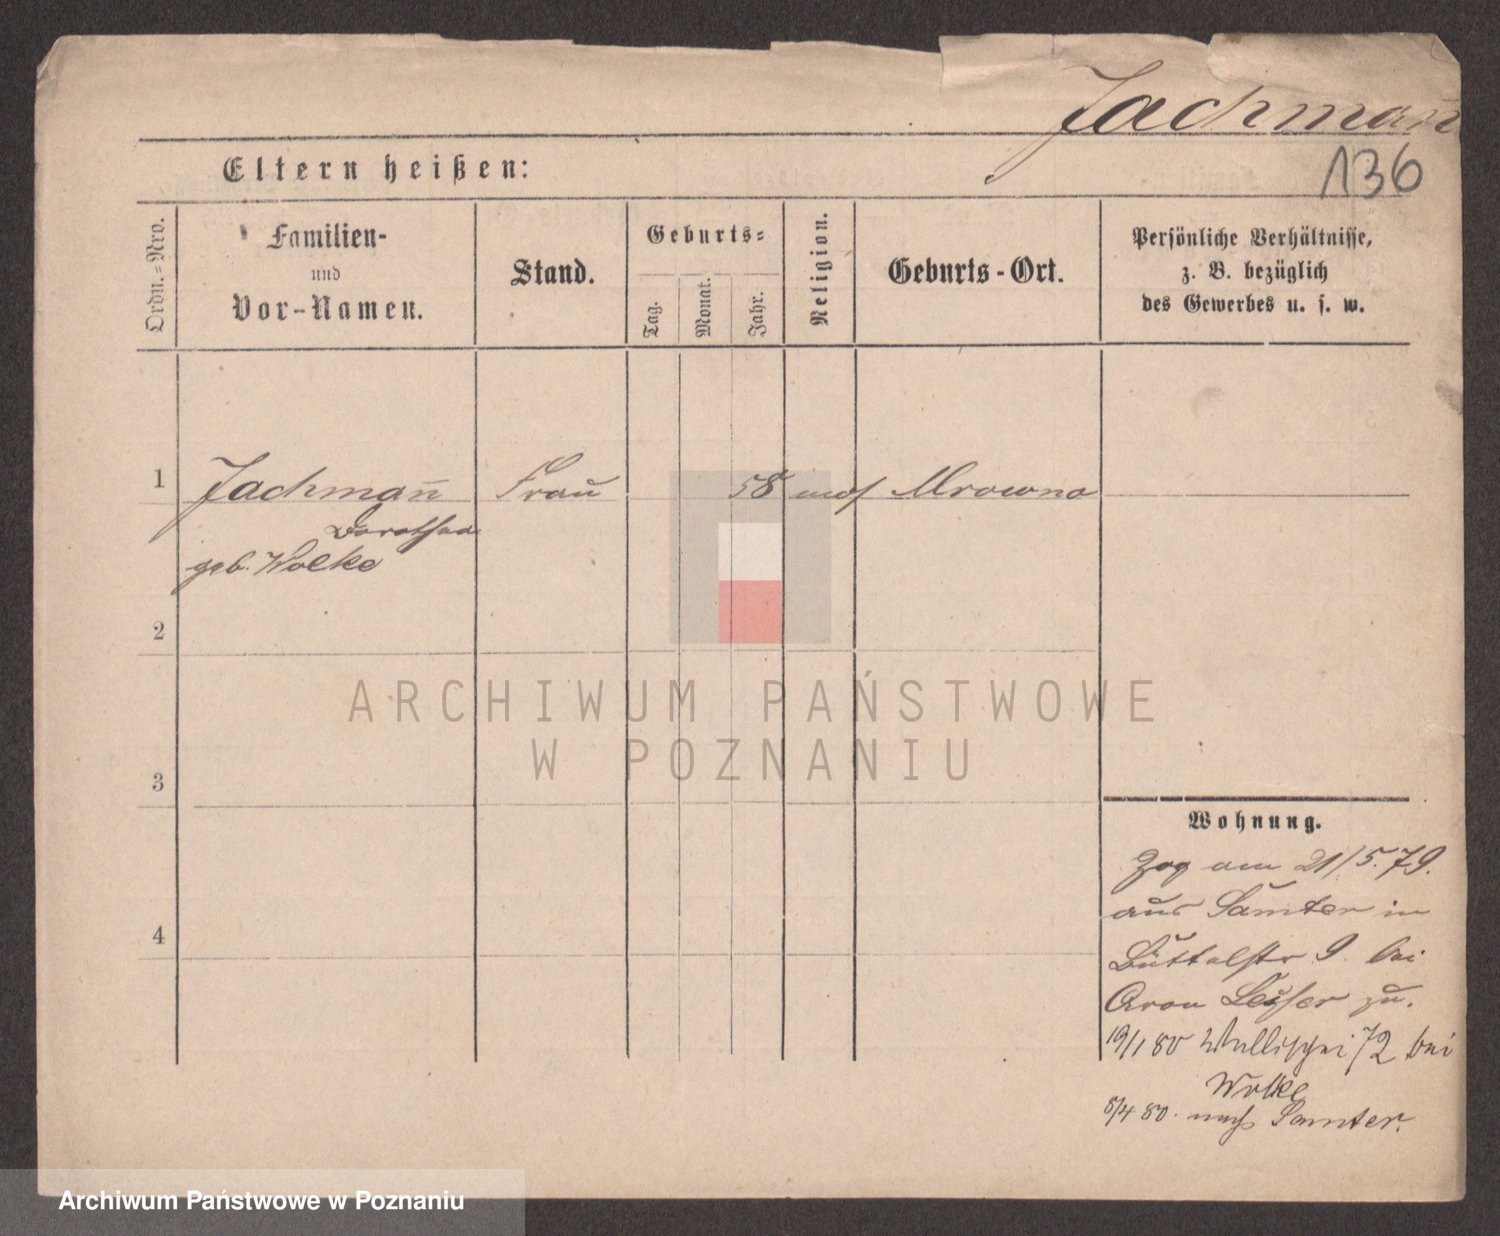 Jachmañ
136
Eltern heißen:
Ordn.=Nro.
Familien-
und
Vor-Namen.
Stand.
Geburts=
Tag.
Monat.
Jahr.
Religion.
Geburts-Ort.
Persönliche Verhältnisse,
z. B. bezüglich
des Gewerbes u. s. w.
1
Jachmañ Frau 58 mos Mrowno
Dorothea
geb. Wolke
2
3
4
ARCHIWUM PAŃSTWOWE
W POZNANIU
Wohnung.
Zog am 21/5.79.
aus Samter in
Büttelstr 9. bei
Aron Leiser zu.
19/1 80 Wallischei 72 bei
Wolke
8/4 80. nach Samter.
Archiwum Państwowe w Poznaniu